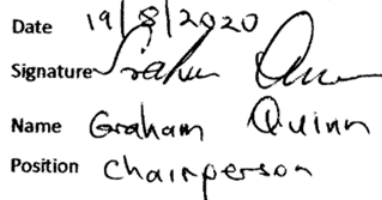 Date 19/8/2020
Signature Graham Quinn
Name Graham Quinn
Position Chairperson